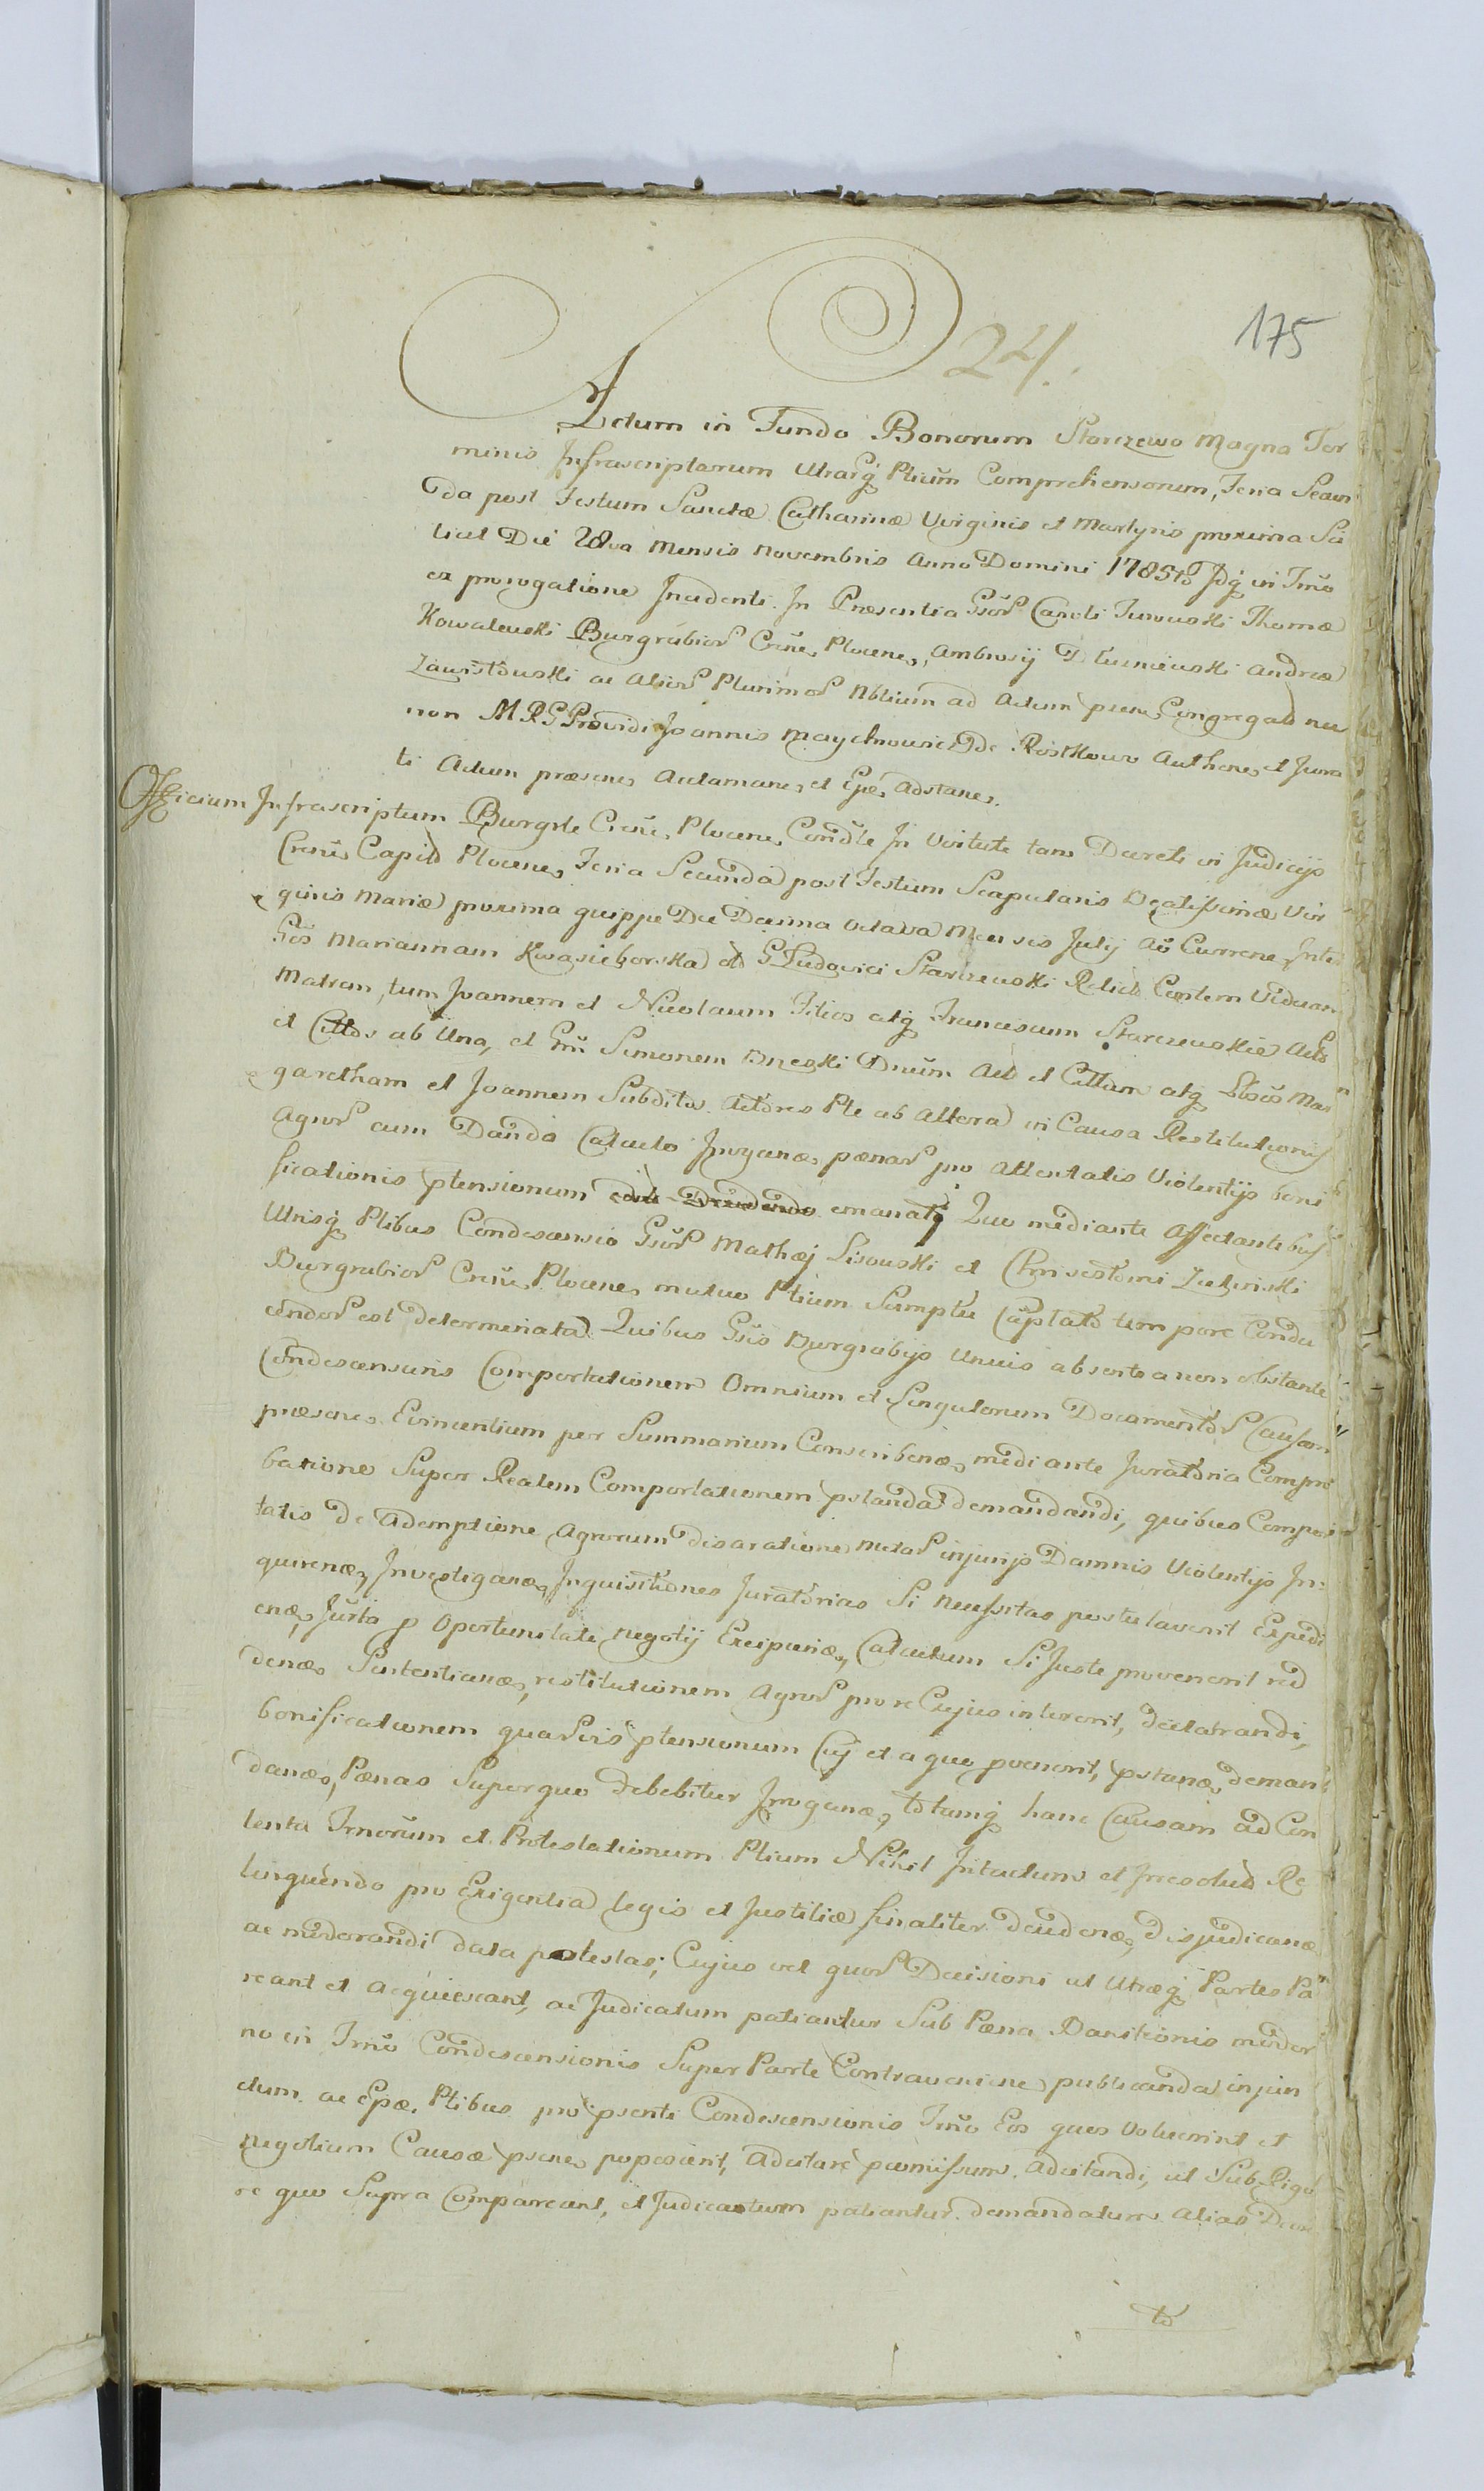 175
24.
Actum in Fundo Bonorum Starczewo Magna Ter
minis Infrascriptarum Utrarq Ptium Comprehensorum, Feria Secun
da post Festum Sanctæ Catharinæ Virginis et Martyris proxima Sci
licet Die 28va Mensis Novembris Anno Domini 1785to Idq in Tmo
ex prorogatione Incidenti. In Præsentia Gsor Caroli Turowski Thomæ
Kowalewski Burgrabior Crne, Plocene, Ambrosij Andreæ
ac Alior Plurimor Nbtium ad Actum præse, Congregato nec
non M R G Providi Joannis Maychrowicz de Rostkowo Authene, et Jura
ti Actum præsene, Acclamane, et Epæ, Adstane,.
Officium Infrascriptum Burgrle Crne, Plocene, Condle In Virtute tam Decreti in Judicijs
Crens, Capitt Plocene, Feria Secunda post Festum Scapularis Beatissimæ Vir
ginis Mariæ proxima quippe Die Decima Octava Mensis Julij Ao Currene, Inter
Gos Mariannam Kwasieborska ol G Ludovici Starczewski Relict Contem Viduam
Matrem, tum Joannem et Nicolaum Filios atq Franciscum Starczewskie Acto
et Cittos ab Una, et Gm Simonem Brzeski Dnum Act et Cittam atq Lbsos Mar
garetham et Joannem Subditos Actores Pte ab Altera in Causa Restitutionis
Agror cum Danda Calculo Irrogane, pænar pro Attentatis Violentijs boni
ficationis ptensionum emanati Quo mediante Affectantibus
Utrisq Ptibus Condescensio Gsor Mathæj Lisowski et Chrisostomi Zielinski
Burgrabior Crne, Plocene, mutuo Ptium Sumptu Captato tempore Condu
cendor est determinata. Quibus Gsis Burgrabijs Unius absentia non obstante
Condescensuris Comportationem Omnium et Singulorum Documentor Causam
præsene, Evincentium per Summarium Conscribene, mediante Juratoria Compro
batione Super Realem Comportationem pstanda demandandi, quibus Compor
tatis de Ademptione Agrorum disaratione metar injurijs Damnis Violentijs In:
quirene, Investigane, Inquisitiones Juratorias Si Necessitas postulaverit Expedi
ene, Juxta p Oportunitate Negotij Excipiene, Calculum Si Juste provenerit red
dene, Sententiane, restitutionem Agror pro re Cujus intererit, declarandi,
bonificationem quarvis ptensionum Cuj et a quo pvenerit, pstane, deman
dane, Pænas Super quo debebitur Irrogane, totamq hanc Causam ad Con
tenta Trnorum et Protestationum Ptium Nihil Intactum et Irresolut Re
linquendo pro Exigentia legis et Justitiæ finaliter decidene, disjudicane
ac moderandi data potestas; Cujus vel quor Decisioni ut Utræq Partes Pa
reant et Acquiescant, ac Judicatum patiantur Sub Pæna Bannitionis moder
no in Tmo Condescensionis Super Parte Contraveniene, publicanda injun
ctum. ac Epæ, Ptibus pro psenti Condescensionis Tmo Eos quos Voluerint et
Negotium Causæ psene, poposcerit, Adcitare præmissum. Adcitandi, ut Sub Rigo
re quo Supra Compareant, et Judicatum patiantur. demandatum. Alias Decre
to